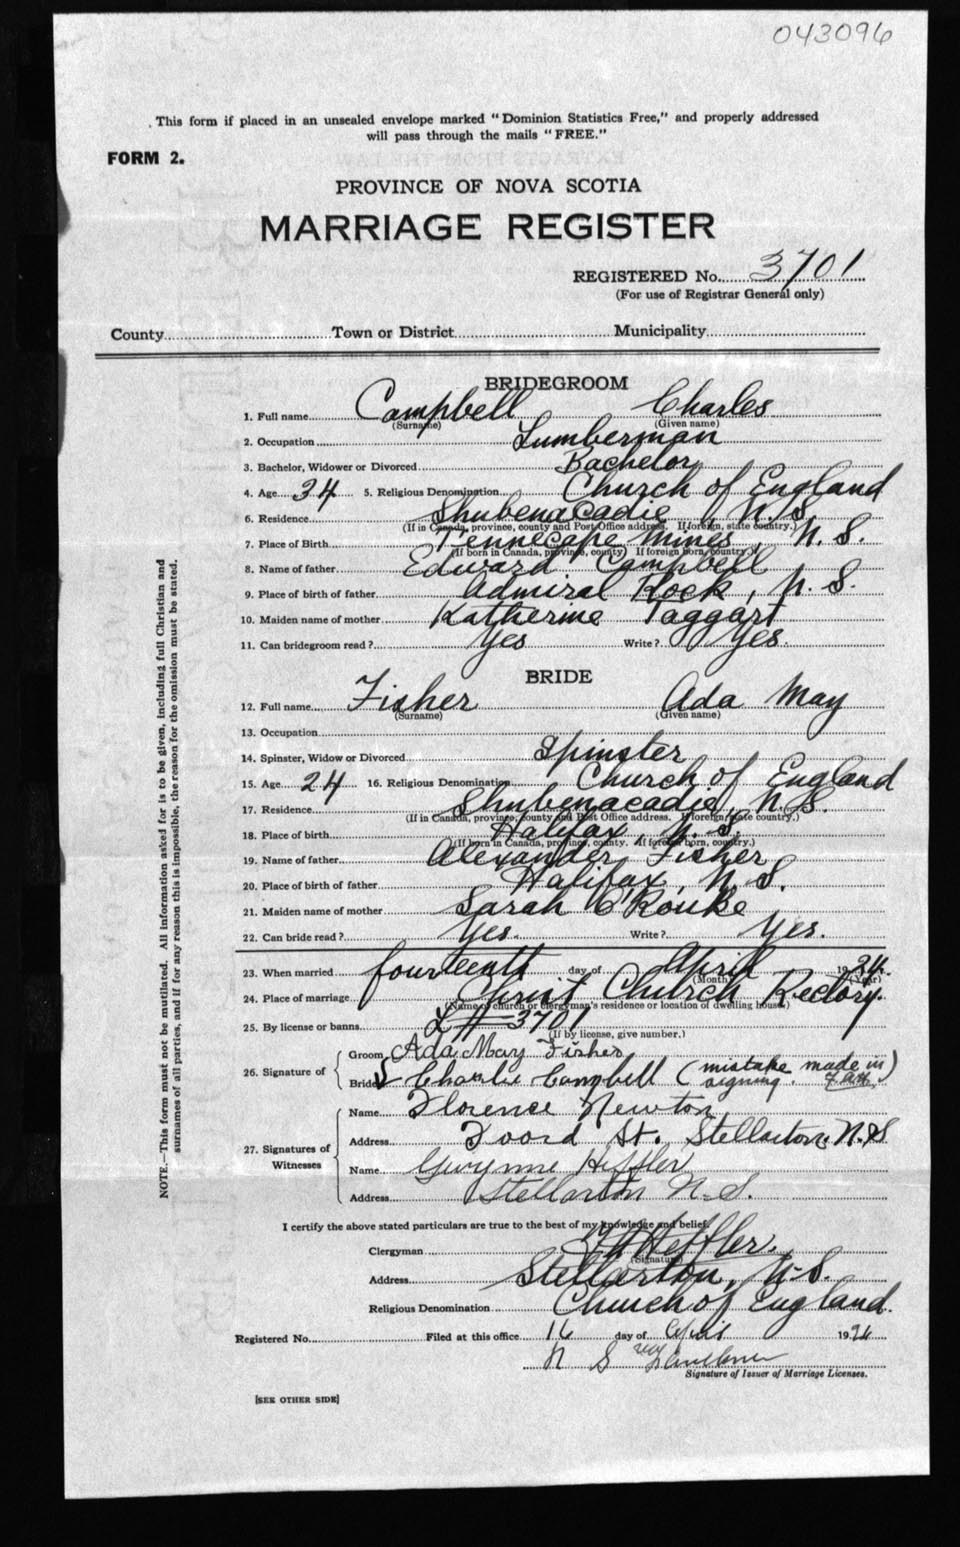 043096
This form if placed in an unsealed envelope marked "Dominion Statistics Free," and properly addressed
will pass through the mails "FREE."
FORM 2.
PROVINCE OF NOVA SCOTIA
MARRIAGE REGISTER
REGISTERED No. 3701
(For use of Registrar General only)
County Town or District Municipality
BRIDEGROOM
1. Full name Campbell Charles
(Surname) (Given name)
2. Occupation Lumberman
3. Bachelor, Widower or Divorced Bachelor
4. Age 34 5. Religious Denomination Church of England
6. Residence Shubenacadie N.S.
(If in Canada, province, county and Post Office address. If foreign, state country.)
7. Place of Birth Tennecape Mines, N.S.
(If born in Canada, province, county) If foreign born, country.)
8. Name of father Edward Campbell
9. Place of birth of father Admiral Rock, N.S.
10. Maiden name of mother Katherine Taggart
11. Can bridegroom read? Yes Write? Yes.
BRIDE
12. Full name Fisher Ada May
(Surname) (Given name)
13. Occupation
14. Spinster, Widow or Divorced Spinster
15. Age 24 16. Religious Denomination Church of England
17. Residence Shubenacadie, N.S.
(If in Canada, province, county and Post Office address. If foreign, state country.)
18. Place of birth Halifax, N.S.
(If born in Canada, province, county. If foreign born, country.)
19. Name of father Alexander Fisher
20. Place of birth of father Halifax, N.S.
21. Maiden name of mother Sarah O'Rouke
22. Can bride read? Yes. Write? Yes.
23. When married fourteenth day of April 19
(Month) (Year)
24. Place of marriage Christ Church Rectory.
(Name of church or clergyman's residence or location of dwelling house)
25. By license or banns L # 3701
(If by license, give number.)
26. Signature of
Groom Ada May Fisher
Bride Charlie Campbell (mistake made in
signing. )
27. Signatures of Witnesses
Name Florence Newton
Address Foord St. Stellarton. N.S.
Name Gwynne Heffler
Address Stellarton N.S.
I certify the above stated particulars are true to the best of my knowledge and belief.
Clergyman Heffler.
(Signature)
Address Stellarton, N-S.
Religious Denomination Church of England.
Registered No. Filed at this office 16 day of April 19
N S
Signature of Issuer of Marriage Licenses.
[SEE OTHER SIDE]
NOTE.—This form must not be mutilated. All information asked for is to be given, including full Christian and
surnames of all parties, and if for any reason this is impossible, the reason for the omission must be stated.